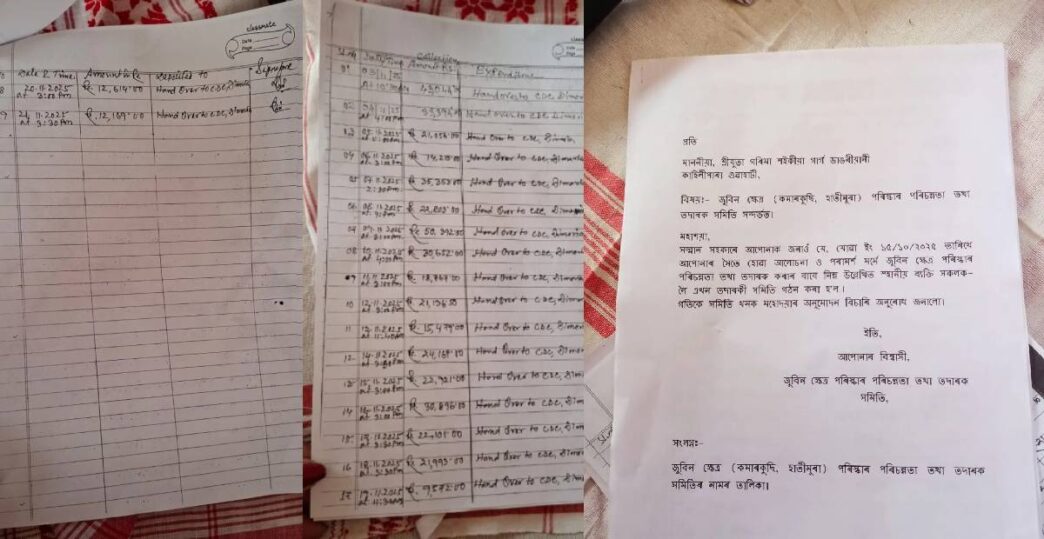 classmate
Date
Page
Date & Time Amount Rs. Deposited to Signature
8 20.11.2025 at 3:00 Pm ₹. 12,614.00 Hand Over to CDC, Dimoria
9 21.11.2025 at 3:30 Pm ₹. 12,169.00 Hand Over to CDC, Dimoria
classmate
Date
Page
Sl.no Date/Time Collection Amount Rs. Expenditure
01 03/11/25 Hand over to CDC, Dimoria
02 Hand over to CDC, Dimoria
03 05.11.2025 ₹ 21,056.00 Hand Over to CDC, Dimoria
04 06.11.2025 Hand Over to CDC, Dimoria
05 07.11.2025 2:30 Pm ₹ Hand Over to CDC, Dimoria
06 08.11.2025 ₹ Hand Over to CDC, Dimoria
09.11.2025 ₹ 50,392.00 Hand Over to CDC, Dimoria
08 10.11.2025 ₹ 20,652.00 Hand Over to CDC, Dimoria
09 11.11.2025 ₹ Hand Over to CDC, Dimoria
10 12.11.2025 ₹ 21,136.00 Hand Over to CDC, Dimoria
11 13.11.2025 ₹ 15,479.00 Hand Over to CDC, Dimor
12 14.11.2025 ₹ 24,169.00 Hand Over to CDC, Dimor
13 15.11.2025 ₹ 22,921.00 Hand Over to CDC, Dimor
14 ₹ 30,896.00 Hand Over to CDC, Dimo
15 ₹ 22,101.00 Hand Over to CDC, Dim
16 18.11.2025 ₹ 21,993.00 Hand Over to CDC, Dim
17 19.11.2025 ₹. 9,572.00 Hand Over to CDC, Dim
প্ৰতি
মাননীয়া, শ্ৰীযুতা গৰিমা শইকীয়া গাৰ্গ ডাঙৰীয়ানী
কাহিলীপাৰা গুৱাহাটী,
বিষয়:- জুবিন ক্ষেত্ৰ (কমাৰকুছি, হাতীমূৰা) পৰিষ্কাৰ পৰিচন্নতা তথা
তদাৰক সমিতি সন্দৰ্ভত।
মহাশয়া,
সন্মান সহকাৰে আপোনাক জনাওঁ যে, যোৱা ইং ১৫/১০/২০২৫ তাৰিখে
আপোনাৰ সৈতে হোৱা আলোচনা ও পৰামৰ্শ মৰ্মে জুবিন ক্ষেত্ৰ পৰিষ্কাৰ
পৰিচন্নতা তথা তদাৰক কৰাৰ বাবে নিম্ন উল্লেখিত স্থানীয় ব্যক্তি সকলক-
লৈ এখন তদাৰকী সমিতি গঠন কৰা হ'ল।
গতিকে সমিতি খনক মহোদয়াৰ অনুমোদন বিচাৰি অনুৰোধ জনালো।
ইতি,
আপোনাৰ বিশ্বাসী,
জুবিন ক্ষেত্ৰ পৰিষ্কাৰ পৰিচন্নতা তথা তদাৰক
সমিতি,
সংলগ্ন:-
জুবিন ক্ষেত্ৰ (কমাৰকুছি, হাতীমূৰা) পৰিষ্কাৰ পৰিচন্নতা তথা তদাৰক
সমিতিৰ নামৰ তালিকা।